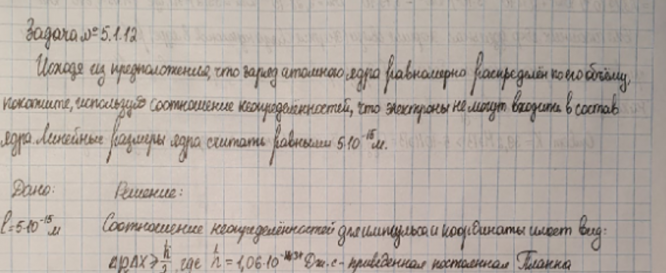 Задача № 5.1.12
Исходя из предположения, что заряд атомного ядра равномерно распределён по его объёму,
покажите, используя соотношение неопределённостей, что электроны не могут входить в состав
ядра. Линейные размеры ядра считать равными 5·10⁻¹⁵ м.
Дано: Решение:
l=5·10⁻¹⁵ м Соотношение неопределённостей для импульса и координаты имеет вид:
ΔpΔx ≥ ħ/2, где ħ = 1,06·10⁻³⁴ Дж·с - приведенная постоянная Планка